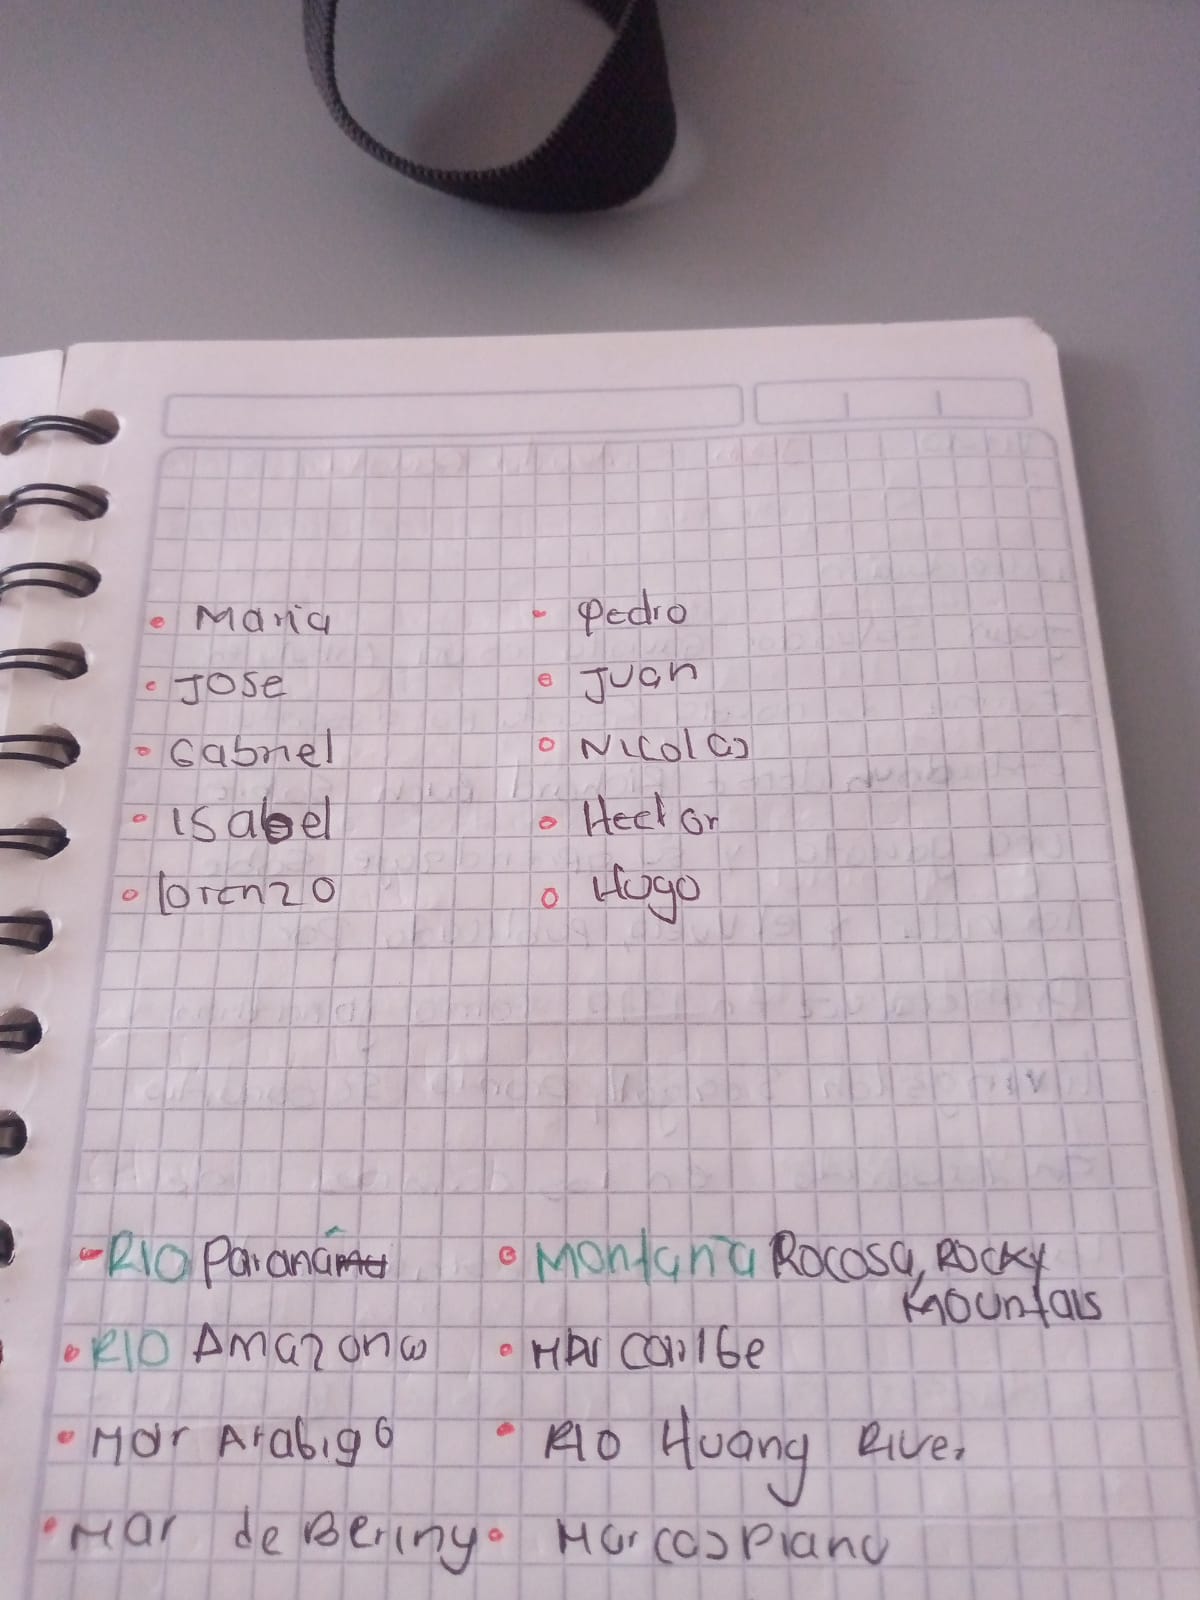 • Maria
• Pedro
• Jose
• Juan
• Gabriel
• Nicolas
• Isabel
• Hector
• lorenzo
• Hugo
- RIO Paraná
• Montaña Rocosa, Rocky
Mountais
• RIO Amazona
• Mar Caribe
• Mar Arabigo
• RIO Huang River
• Mar de Bering
• Mar Caspiano